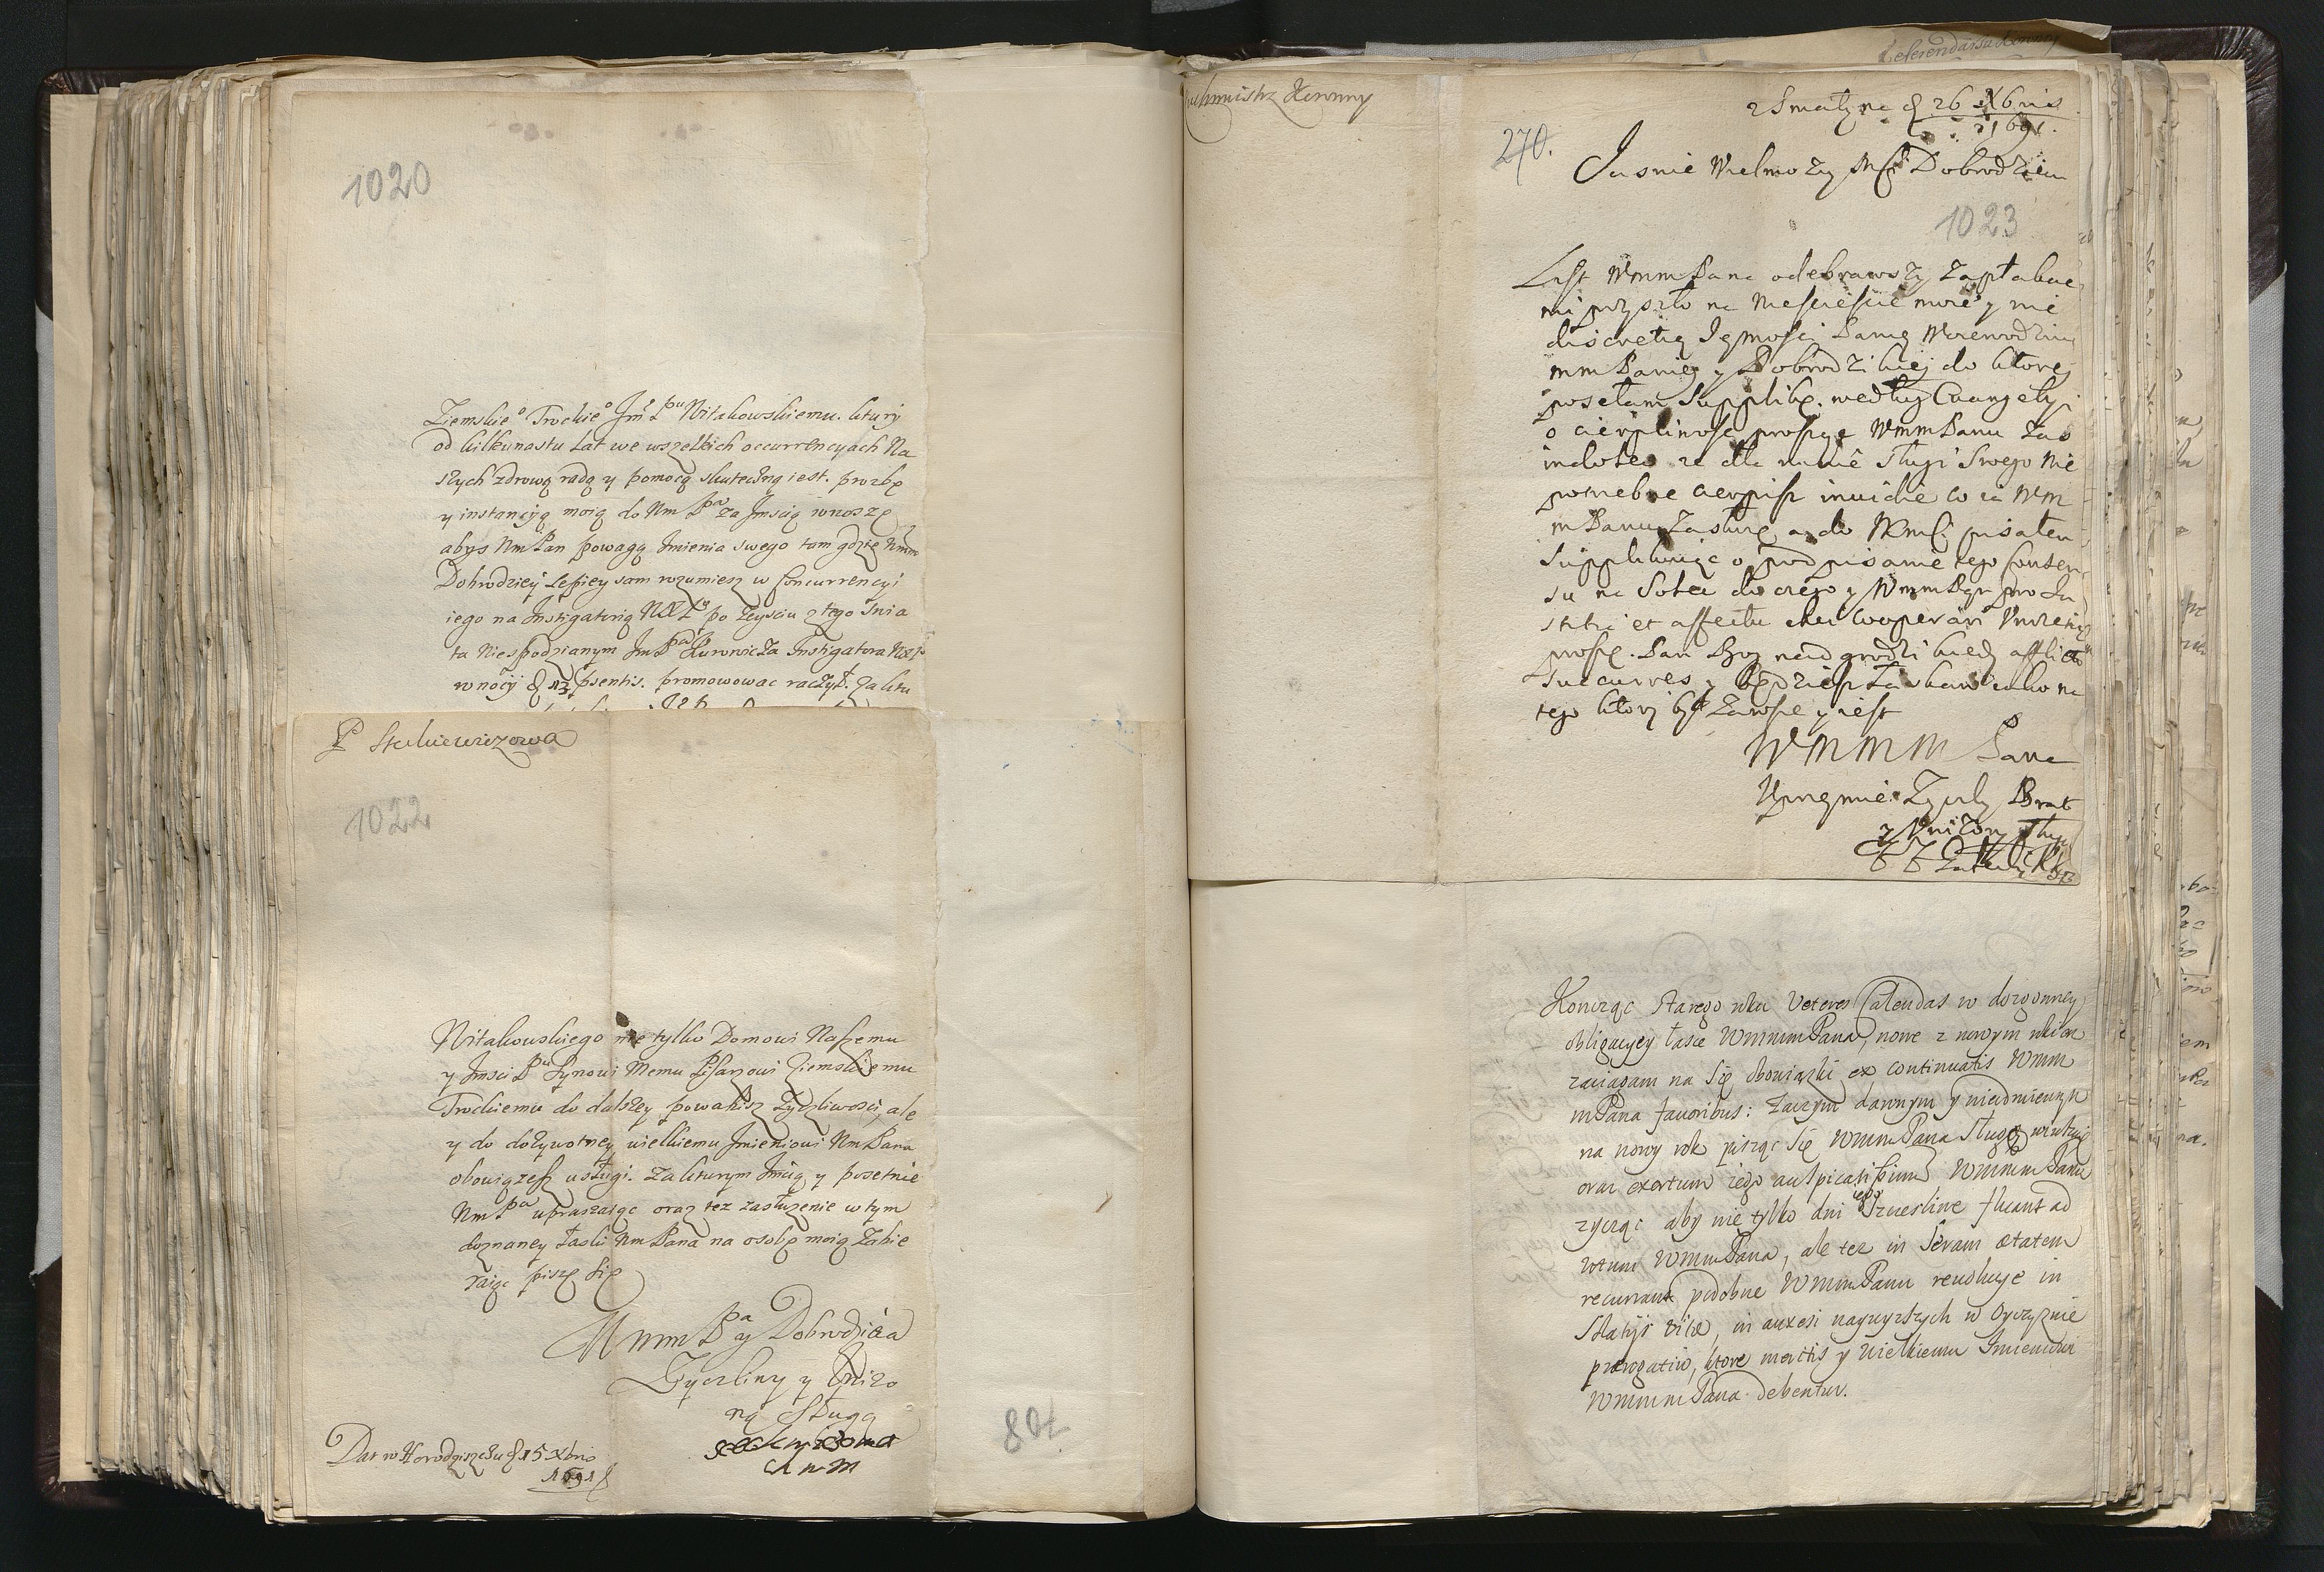 1020
Ziemskieo Trockieo Jmć Pu Nitakowskiemu. ktury
od kilkunastu Lat we wszelkich occurrencyach Na
szych zdrową radą y pomocą skuteczną iest. prozbę
y instancyą moią do Wm Pa za Jmscią wnoszę
abys Wm Pan powagą Jmienia swego tam gdzie Wmm
Dobrodziey Lepiey sam rozumiesz w Concurrencyi
iego na Instigatorią WXL po zeysciu z tego Swia
ta Niespodzianym Jm Pa Kurowicza Instigatora WXL
w nocy d 13 psentis. promowowac raczył. za ktu
P Stekiewiczowa
1022
Nitakowskiego nie tylko Domowi Naszemu
y Jmsci Pu Synowi Memu Pisarzowi Ziemskiemu
Trockiemu do dalszey powabisz Zyczliwosci, ale
y do dozywotney wielkiemu Jmieniowi Wm Pana
obowiązesz usługi. za kturym Jmcią y posetnie
Wm Pa upraszaiąc oraz tez zasłuzenie w tym
doznaney łaski Wm Pana na osobę moią Zabie
raiąc piszę się
Wmm Pa y Dobrodzieia
Zyczliwy y Unizo
ną Sługą
Dat w Horodziszczu d 15 Xbris
1691
801
Kuchmistrz Koronny
Referendarsu Koronny
z Smatyne d 26 Xbris
1691.
270.
Jasnie Wielmozy Mśći Dobrodzieiu
1023
List WmmPana odebrawszy zapłakac
mi przyszło na niescięscie moie y nie
discretią Jeymosci Panię Woiewodzinę
mm Panię y Dobrodziką do ktorey
posełam Supplikę. według Ewangelyi
o cierpliwosc proszę WmmPanu Zas
za dla mnie sługi Swego nie
potrzebne cierpisz inuidie co ia Wm
mPanu Zasłuzę, a do WKmsci pisałem
Supplikuiąc o podpisanie tego Consen
su na do czego y WmmPan pro Ju
stitia et affectu chciey Cooperari Unizenie
proszę. Pan Bog nadgrodzi kiedy afflicto
succurres y będziesz łaskaw iako na
tego ktory był zawsze y iest
WMMM Pana
Uprzeymie Zyczly Brat
y Unizony sługa
Koncząc starego roku Veteres Calendas w dozgonney
obligacyey łasce WmmmPana, nowe z nowym rokiem
zaciągam na się obowiązki ex continuatis Wmm
mPana fauoribus: zaczym dawnym y nieodmiennym
na nowy rok pisząc się WmmmPana Sługą winszuię
oraz exortum iego auspicatissimum WmmmPanu
zycząc aby nie tylko dni iego szczesliwe fluant ad
votum WmmmPana, ale tez in seram ætatem
recurrant podobne WmmmPanu rewoluye in
Statÿs vitæ, in auxesi naywyzszych w Oyczyznie
prærogatiw, ktore meritis y wielkiemu Jmieniowi
WmmmPana debentur.